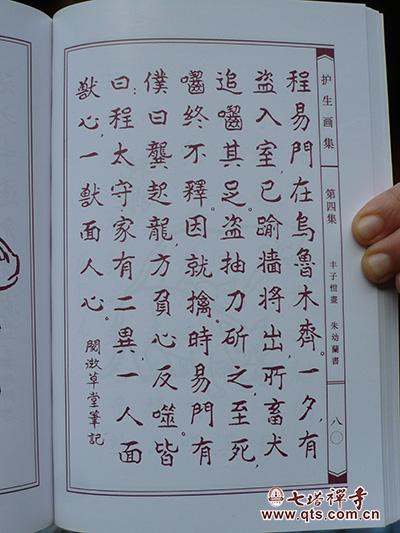 护生画集 第四集 丰子愷畫 朱幼蘭書 八〇
程易門在烏魯木齊。一夕,有
盜入室,已踰墻將出,所畜犬
追嚙其足。盜抽刀斫之,至死
嚙終不釋,因就擒。時易門有
僕曰龔起龍,方負心反噬,皆
曰:程太守家有二異,一人面
獸心,一獸面人心。
閱微草堂筆記
七塔禪寺
www.qts.com.cn